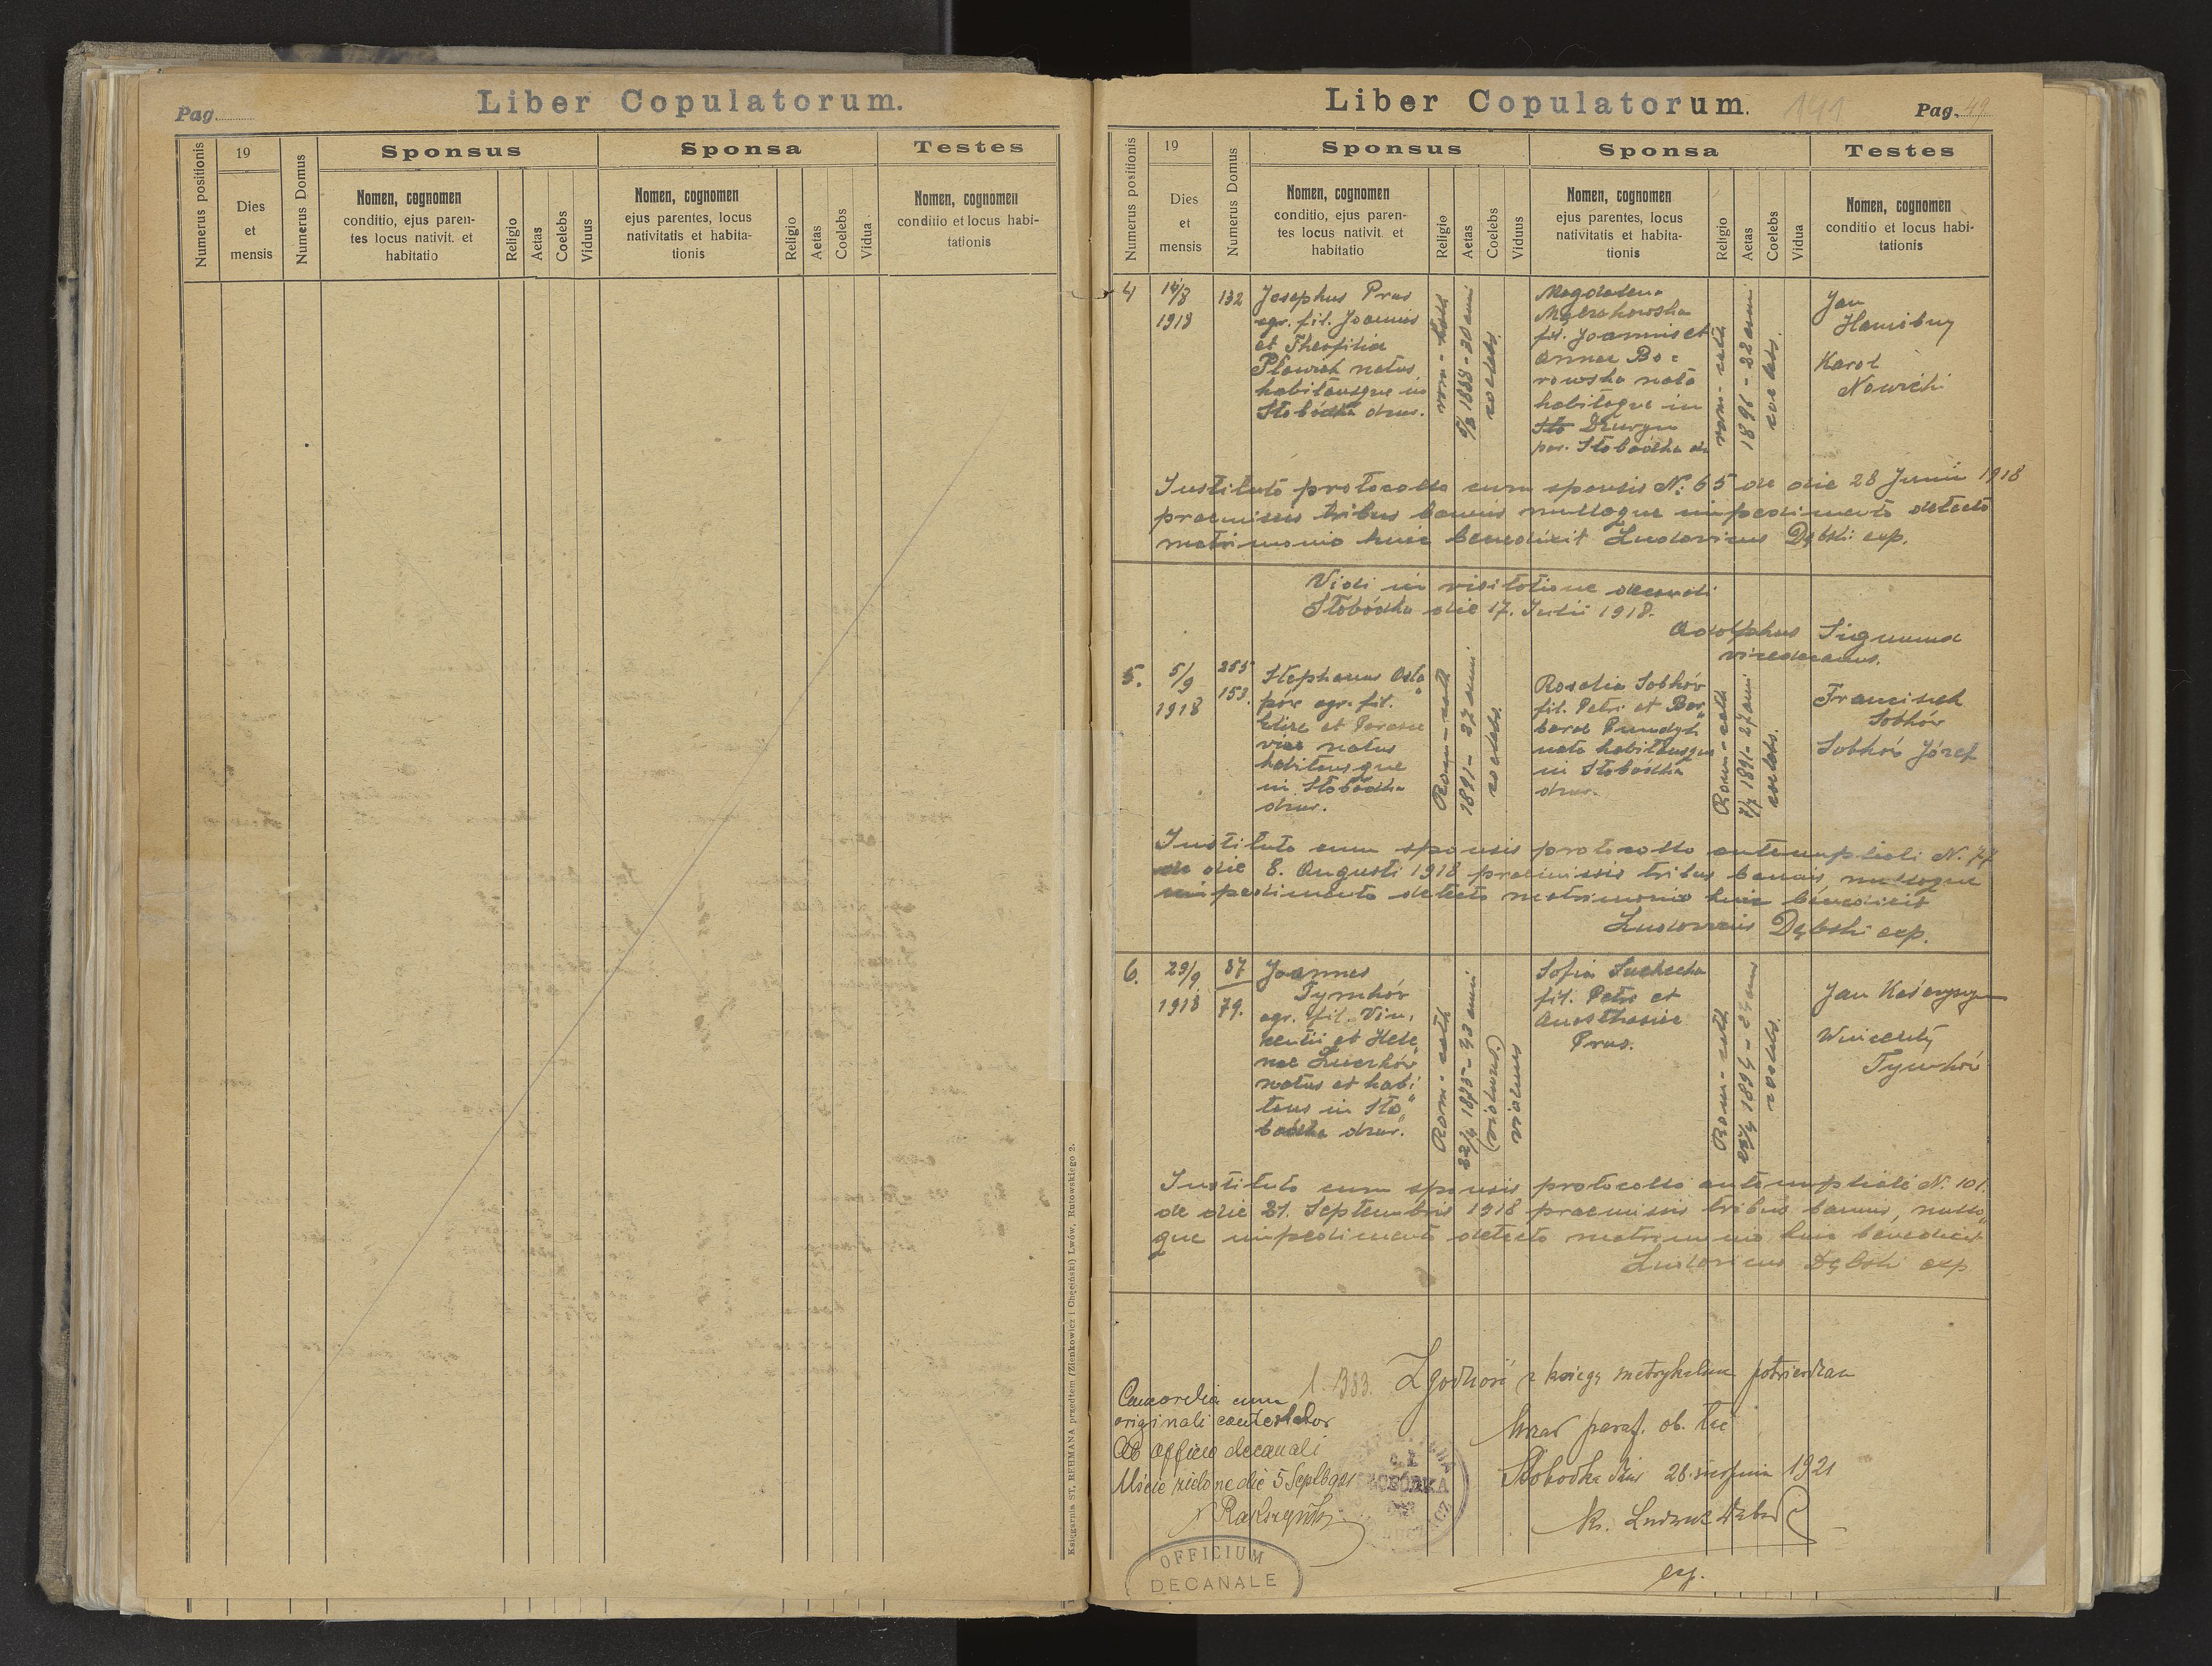 Liber Copulatorum.
Pag.
Numerus positionis
19
Dies
et
mensis
Numerus Domus
Sponsus
Nomen, cognomen
conditio, ejus paren-
tes locus nativit. et
habitatio
Religio
Aetas
Coelebs
Viduus
Sponsa
Nomen, cognomen
ejus parentes, locus
nativitatis et habita-
tionis
Religio
Aetas
Coelebs
Vidua
Testes
Nomen, cognomen
conditio et locus habi-
tationis
Księgarnia ST. REHMANA przedtem (Zienkowicz i Chęciński) Lwów, Rutowskiego 2.
Liber Copulatorum.
191
Pag. 49
Numerus positionis
19
Dies
et
mensis
Numerus Domus
Sponsus
Nomen, cognomen
conditio, ejus paren-
tes locus nativit. et
habitatio
Religio
Aetas
Coelebs
Viduus
Sponsa
Nomen, cognomen
ejus parentes, locus
nativitatis et habita-
tionis
Religio
Aetas
Coelebs
Vidua
Testes
Nomen, cognomen
conditio et locus habi-
tationis
4
1918
132
Josephus Prus
agr. fil. Joannis
et Theofiliae
natus
habitansque in
Słobódka drus.
rom-cath
1888-30 anni
coelebs.
Magdalena
fil. Joannis et
Annae Bo-
rowska nata
habitaque in
par. Słobódka
rom-cath
1896-22 anni
coelebs.
Jan
Karol
Nowicki
Instituto protocollo cum sponsis N: 65 de die 28 Junii 1918
praemissis tribus bannis nulloque impedimento detecto
matrimonio huic benedixit Ludovicus Dębski exp.
Vidi in visitatione decanali
Słobódka die 17. Julii 1918.
Adolphus Sigmund
vicedecanus.
5.
5/9
1918
255
153.
Stephanus Osta
agr. fil.
Eliae et
natus
habitansque
in Słobódka
drus.
Rom-cath
1891-27 anni
coelebs.
Rosalia Sobków
fil. Petri et Bar
barae
nata habitansque
in Słobódka
drus.
Rom-cath
1891-27 anni
coelebs.
Franciszek
Sobków
Sobków Józef
Instituto cum sponsis protocollo antenuptiali N. 77
de die 8. Augusti 1918 praemissis tribus bannis nulloque
impedimento detecto matrimonio huic benedixit
Ludovicus Dębski exp.
6.
29/9
1918
37
79.
Joannes
Tymków
agr. fil. Vin,
centii et Hele
nae
natus et habi
tans in Sło,
bódka drus.
Rom-cath
1875-43 anni
(viduus)
viduus
Sofia Suchecka
fil. Petri et
Anasthasiae
Prus.
Rom-cath
1894-24 anni
coelebs.
Jan
Wincenty
Tymków
Instituto cum sponsis protocollo antenuptiali N. 101.
de die 21. Septembris 1918 praemissis tribus bannis, nullo
que impedimento detecto matrimonio huic benedixit
Ludovicus Dębski exp.
Concordia cum
originali contestatur
Ab officio decanali
die 5 Sept 1921
OFFICIUM
DECANALE
Zgodność z księgą metrykalną potwierdzam
Urząd paraf. ob. łać
Słobódka 28. sierpnia 1921
Ks. Ludwik Dębski
exp.